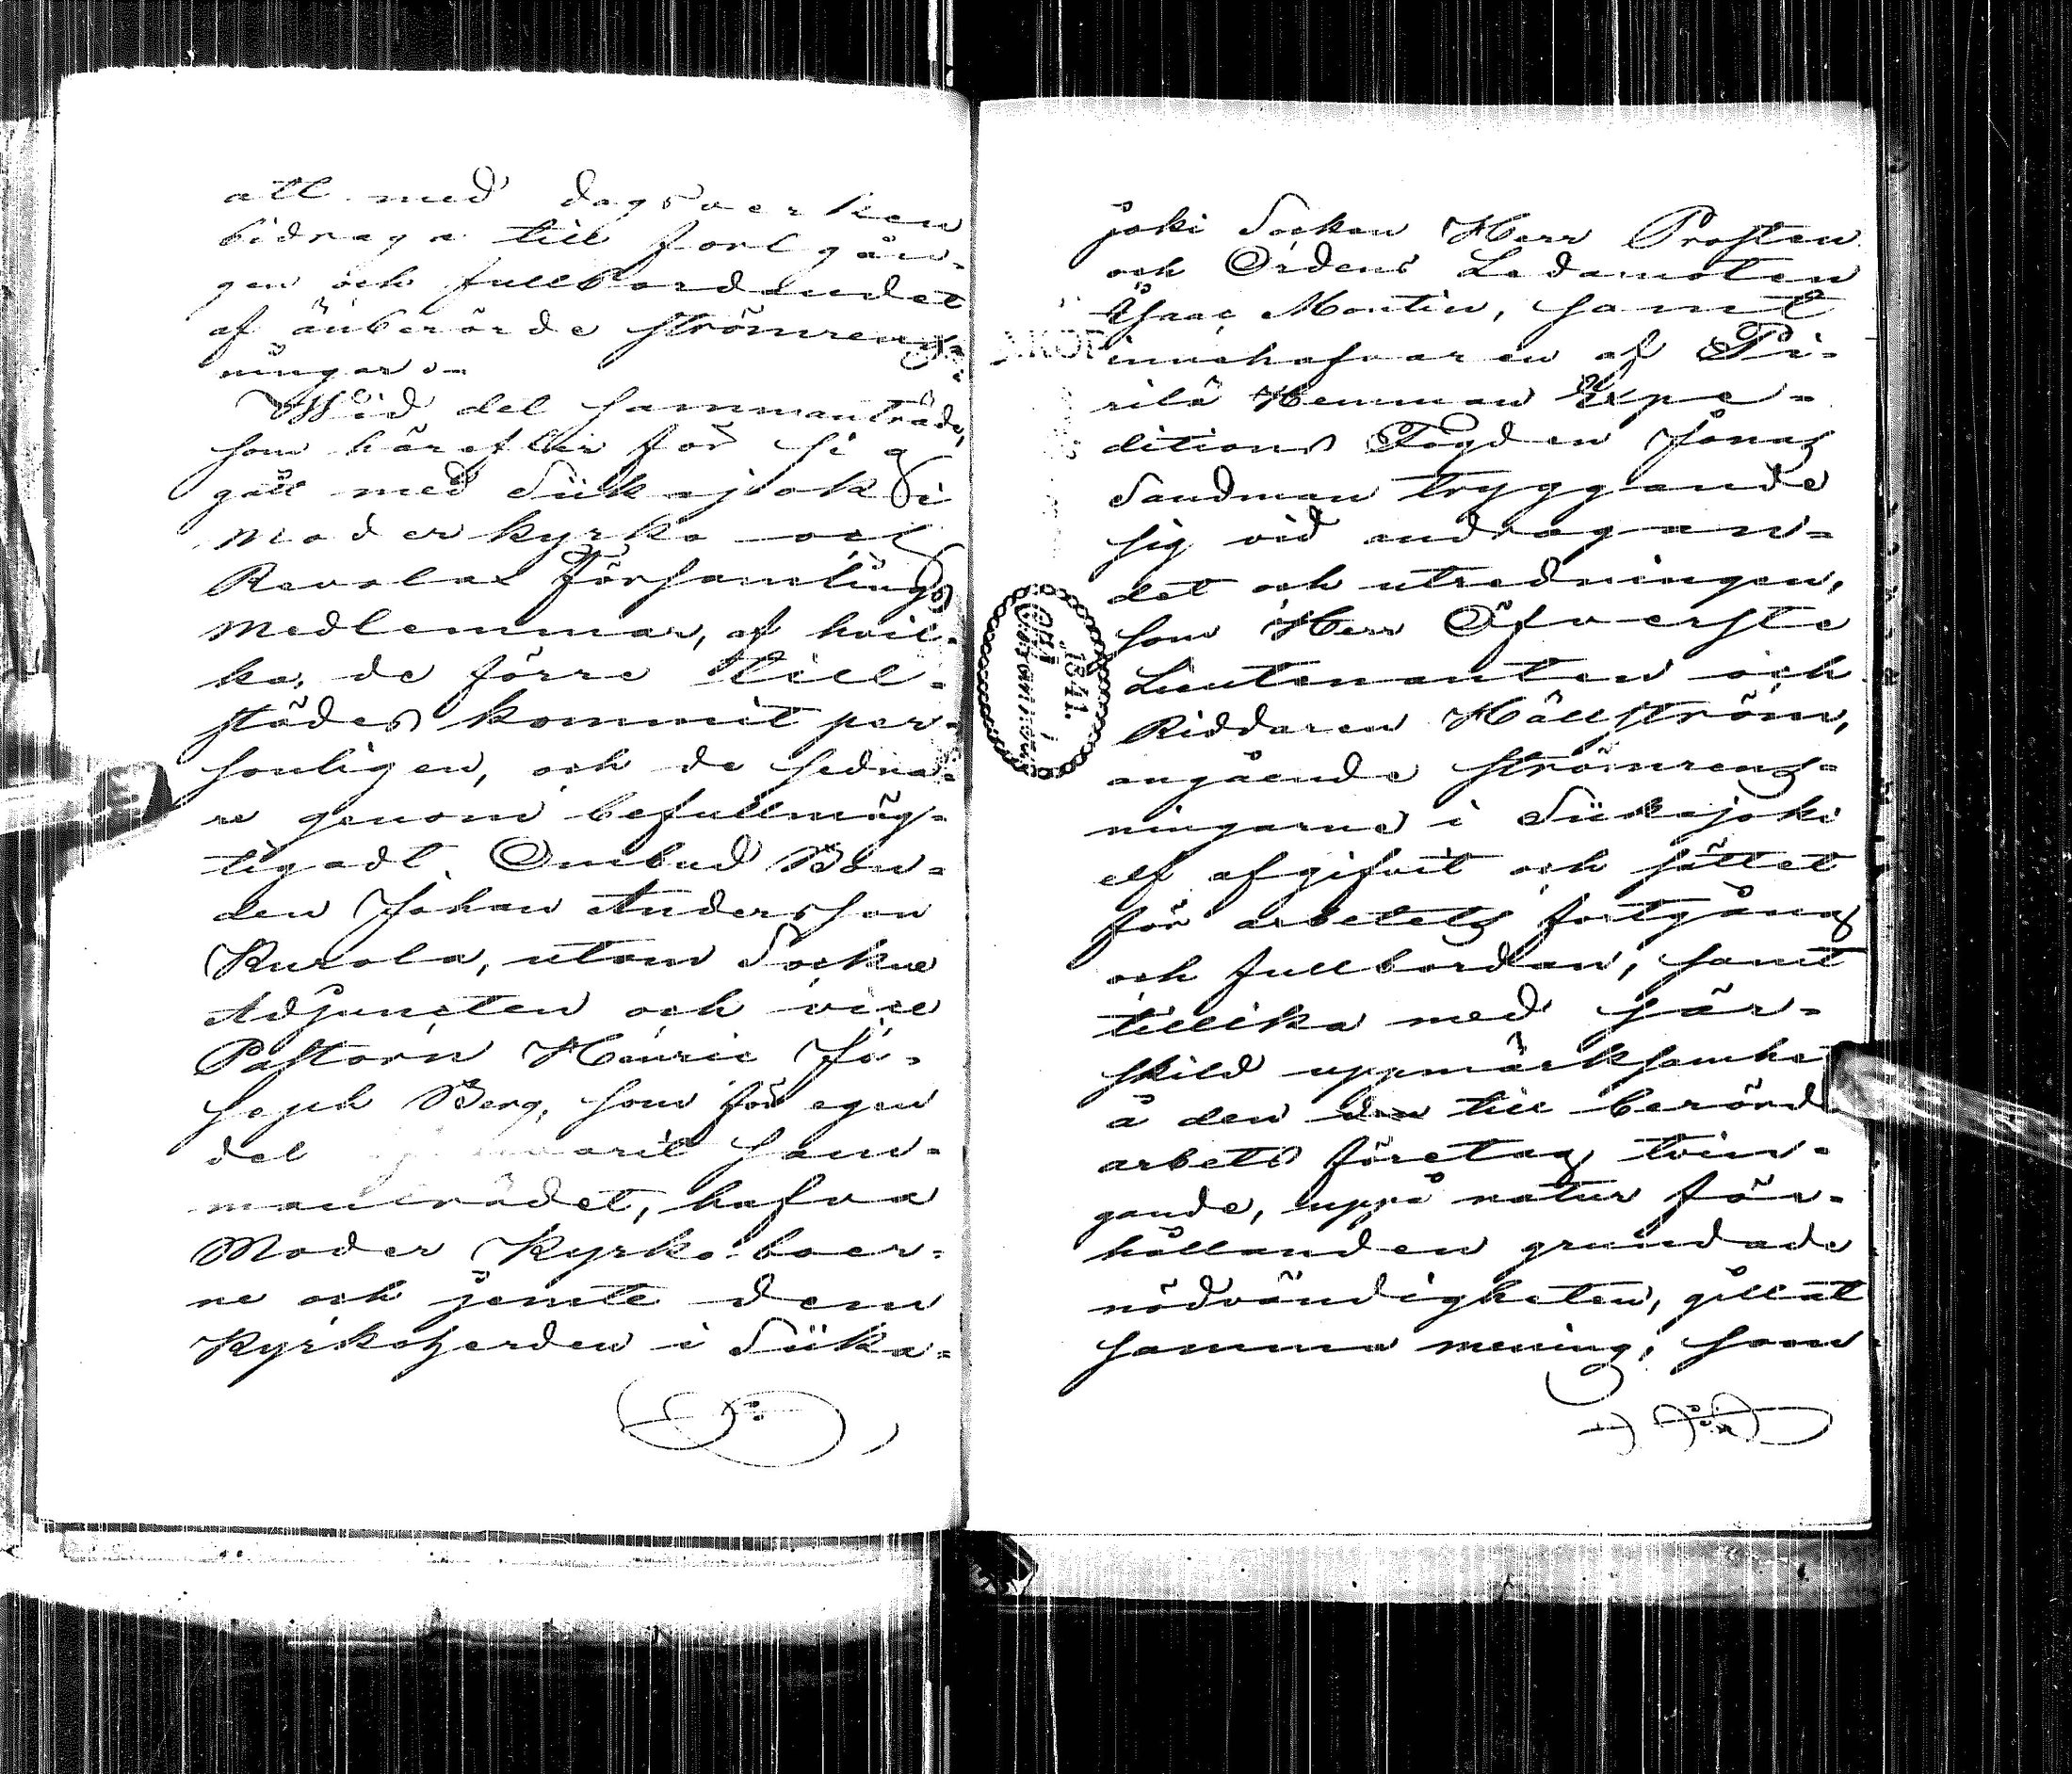 att med dagsverken
bidraga till fortgån-
gen och fullbordandet
af ånberörde strömrens-
ningar.
Wid det sammanträde,
som härefter för sig
gått med Siikajoki
moderkyrko och
Revolax Församlings
medlemmar, af hvil-
ka, de förre till-
städes kommit per-
sonligen, och de sedna-
re genom befullmäg-
tigadt Ombud Bon-
den Johan Andersson
Kurola, utom Sockne
Adjuncten och vice
Pastorn Henric Jo-
seph Berg, som för egen
del sam-
manträdet, hafva
Moder Kyrko boer-
ne och jemte dem
Kyrkoherden i Siika-
joki Socken Herr Prosten
och Ordens Ledamoten
Isaac Montin, samt
innehafvaren af Pi-
rilä Hemman Expe-
ditions Fogden Jonas
Sandman tryggande
sig vid andragan-
det och utredningen,
som Herr Öfverste
Lieutenanten och
Riddaren Hällström,
angående strömrens-
ningarne i Siikajoki
elf afgifvit och sättet
för arbetets fortgång
och fullbordan, samt
tillika med sär-
skild uppmärksamhet
å den till berörde
arbets företag tvin-
gande, uppå natur för-
hållanden grundade
nödvändigheten, gillat
samma mening, som
1841.